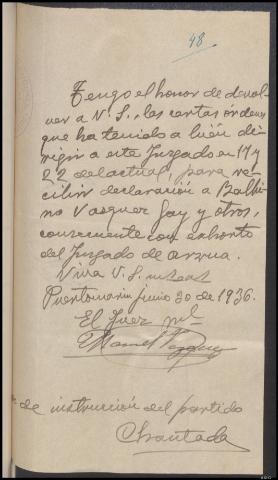 48
Tengo el honor de devol-
ver a V. S., las cartas órdenes
que ha tenido a bién diri-
rigir a este Juzgado en 17 y
22 del actual, para re-
cibir declaración a Balbi-
no Vasquez Gay y otros,
consecuente con exhorto
del Juzgado de Arzua.
Viva V. S. m
Puertomarin junio 30 de 1936.
El Juez m
Manuel Vazquez
de instrucción del partido
Chantada